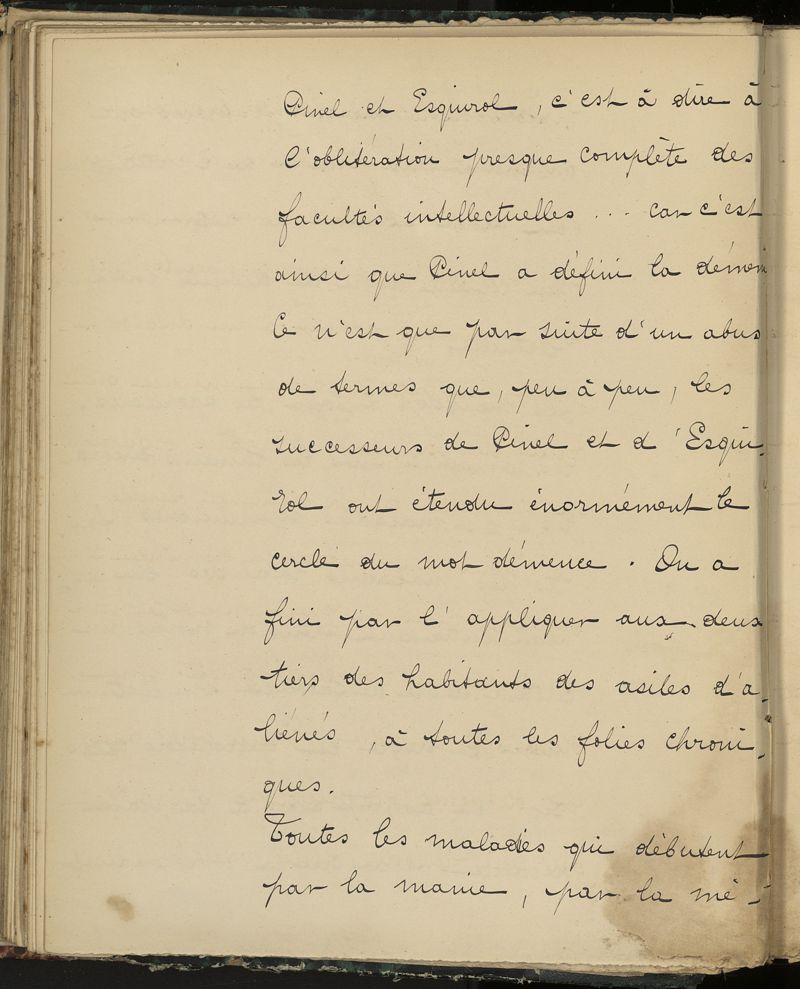 Pinel et Esquirol, c'est à dire à
l'oblitération presque complète des
facultés intellectuelles ... car c'est
ainsi que Pinel a défini la démen
Ce n'est que par suite d'un abus
de termes que, peu à peu, les
successeurs de Pinel et d'Esqui-
rol ont étendu énormément le
cercle du mot démence. On a
fini par l'appliquer aux deux
tiers des habitants des asiles d'a-
liénés, à toutes les folies chroni-
ques.
Toutes les maladies qui débutent
par la manie, par la mé-